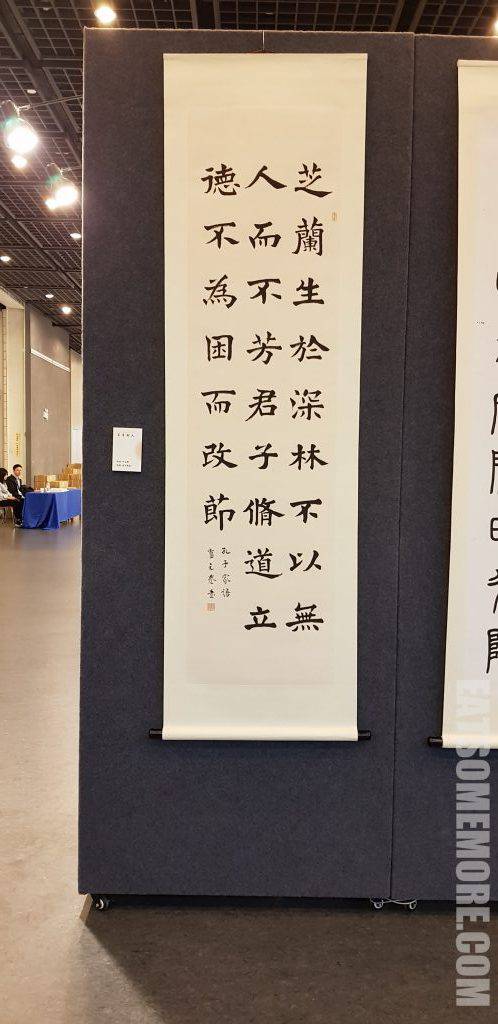 芝蘭生於深林不以無
人而不芳君子脩道立
德不為困而改節
孔子家語
EATSOMEMORE.COM